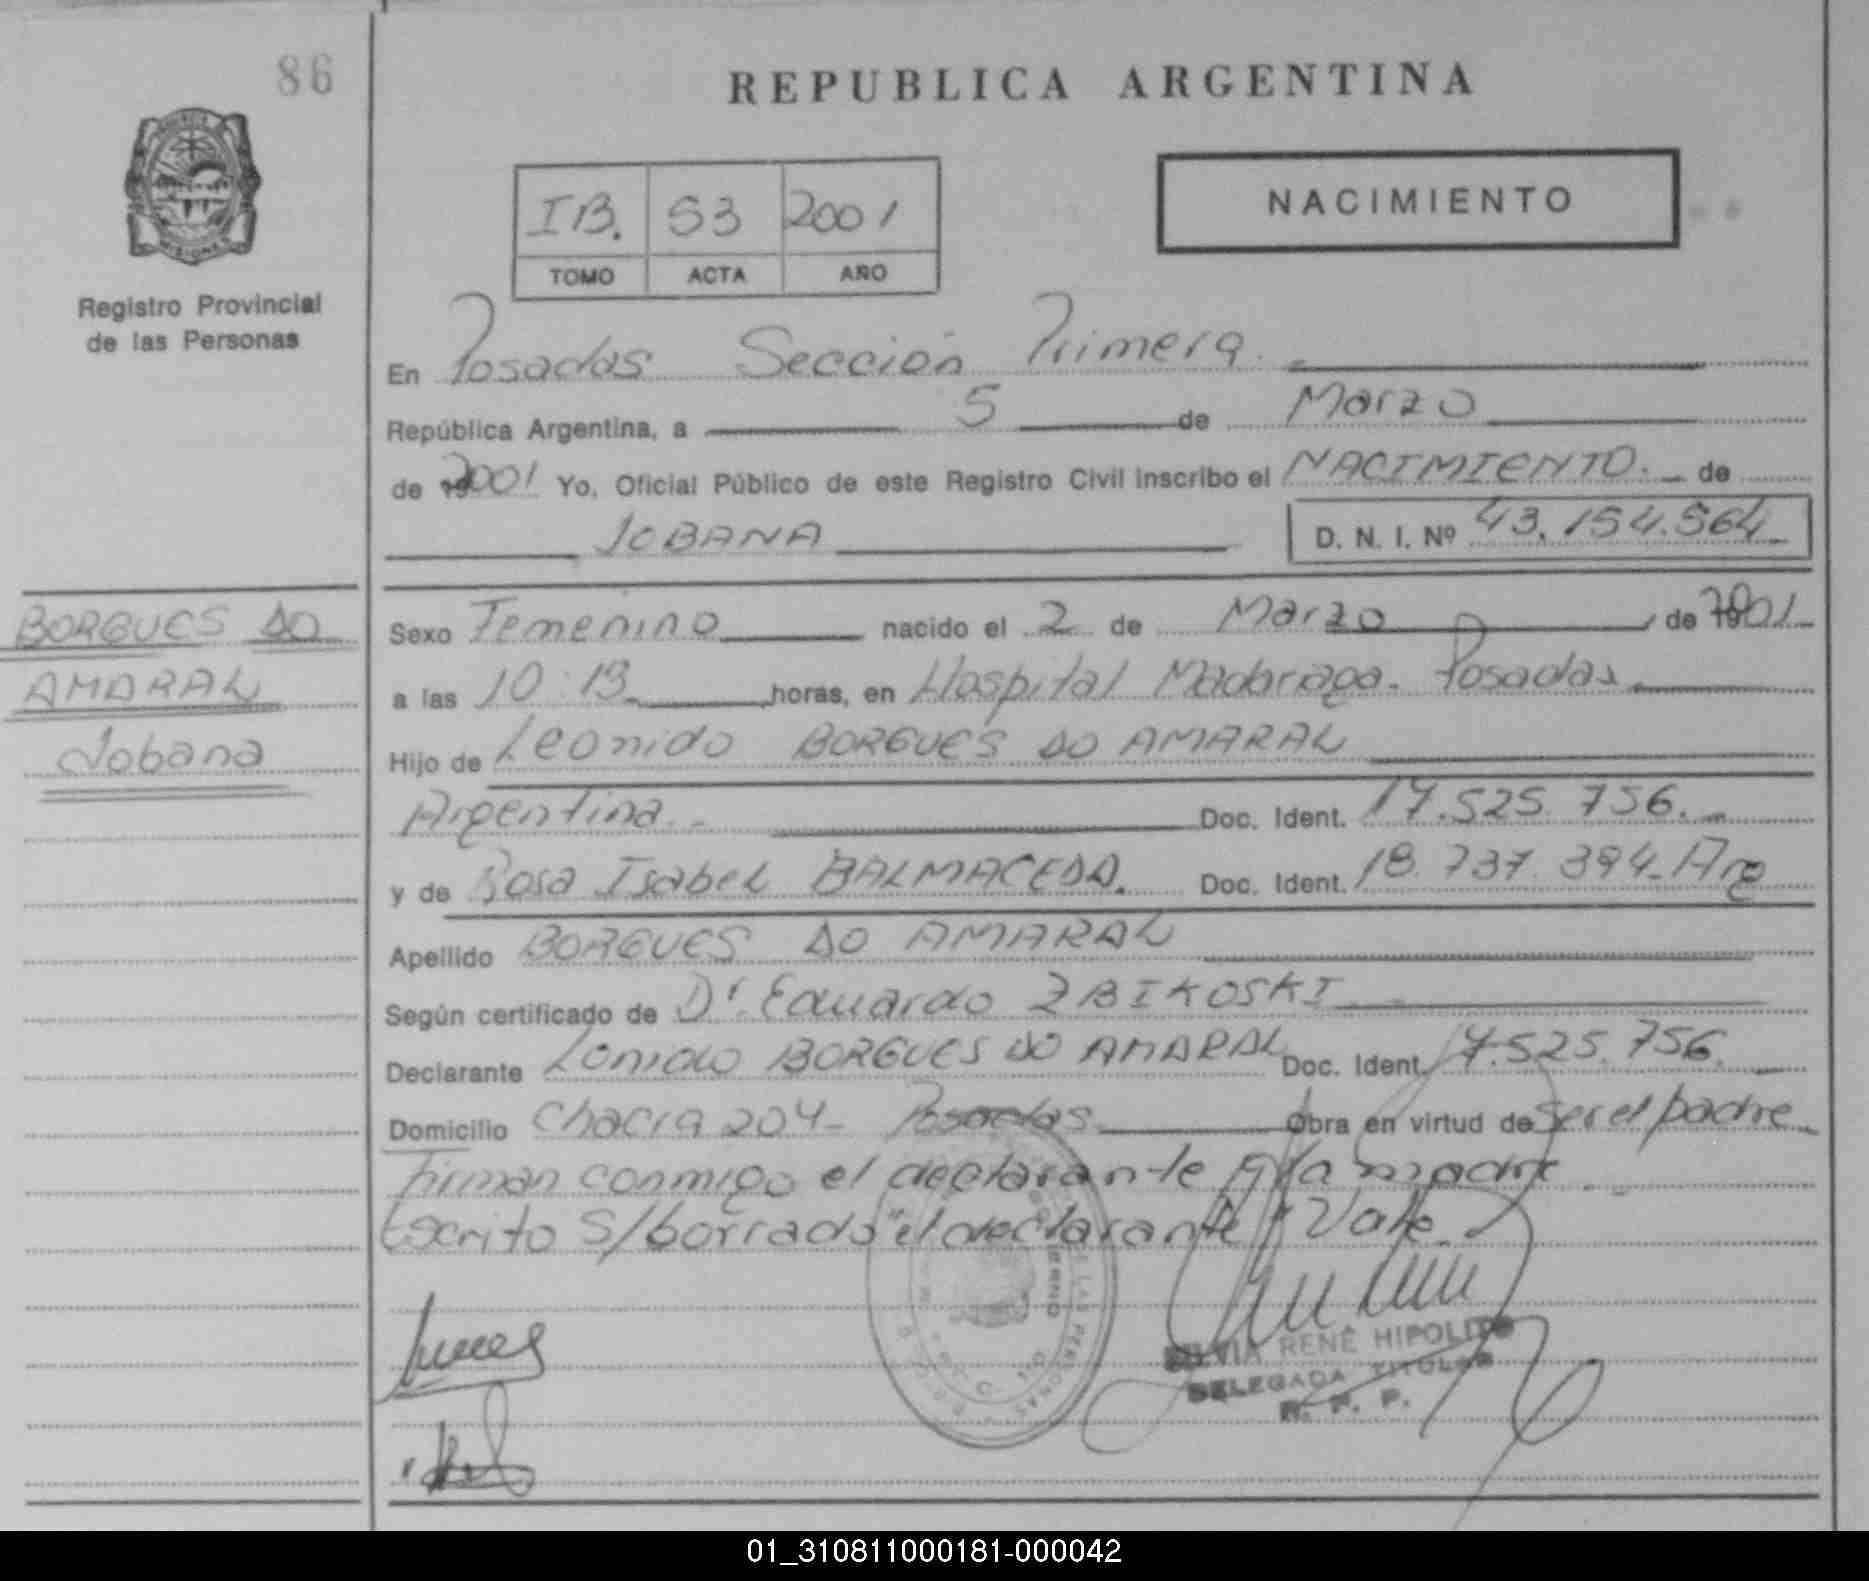 86
REPUBLICA ARGENTINA
MISIONES
Registro Provincial
de las Personas
IB. 53 2001
TOMO ACTA AÑO
NACIMIENTO
En Posadas Sección Primera.
República Argentina, a 5 de Marzo
de 2001 Yo, Oficial Público de este Registro Civil inscribo el NACIMIENTO. de
JOBANA D. N. I. Nº 43.154.564
BORGUES DO
AMARAL
Jobana
Sexo Femenino nacido el 2 de Marzo de 2001
a las 10:13 horas, en Hospital Madariaga. Posadas.
Hijo de Leonido BORGUES DO AMARAL
Argentina. Doc. Ident. 17.525.756.
y de Rosa Isabel BALMACEDA. Doc. Ident. 18.737.394-Arg
Apellido BORGUES DO AMARAL
Según certificado de Dr. Eduardo ZBIKOSKI
Declarante Lonido BORGUES DO AMARAL Doc. Ident. 17.525.756.
Domicilio Chacra 204- Posadas Obra en virtud de Ser el padre
Firman conmigo el declarante y la madre
Escrito S/borrado "el declarante" Vale.
SILVIA RENÉ HIPOLITO
DELEGADA TITULAR
R. P. P.
01_310811000181-000042